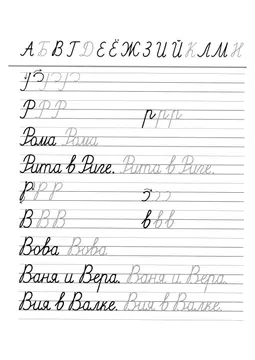 А Б В Г Д Е Ё Ж З И Й К Л М Н
Р Р Р р р р
Рома Рома
Рита в Риге. Рита в Риге.
Р Р Р
В В В в в в
Вова Вова
Ваня и Вера. Ваня и Вера.
Вия в Валке. Вия в Валке.